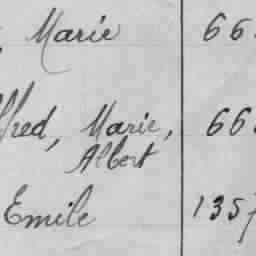 , Marie 66
fred, Marie, 66
Albert
Emile 1357